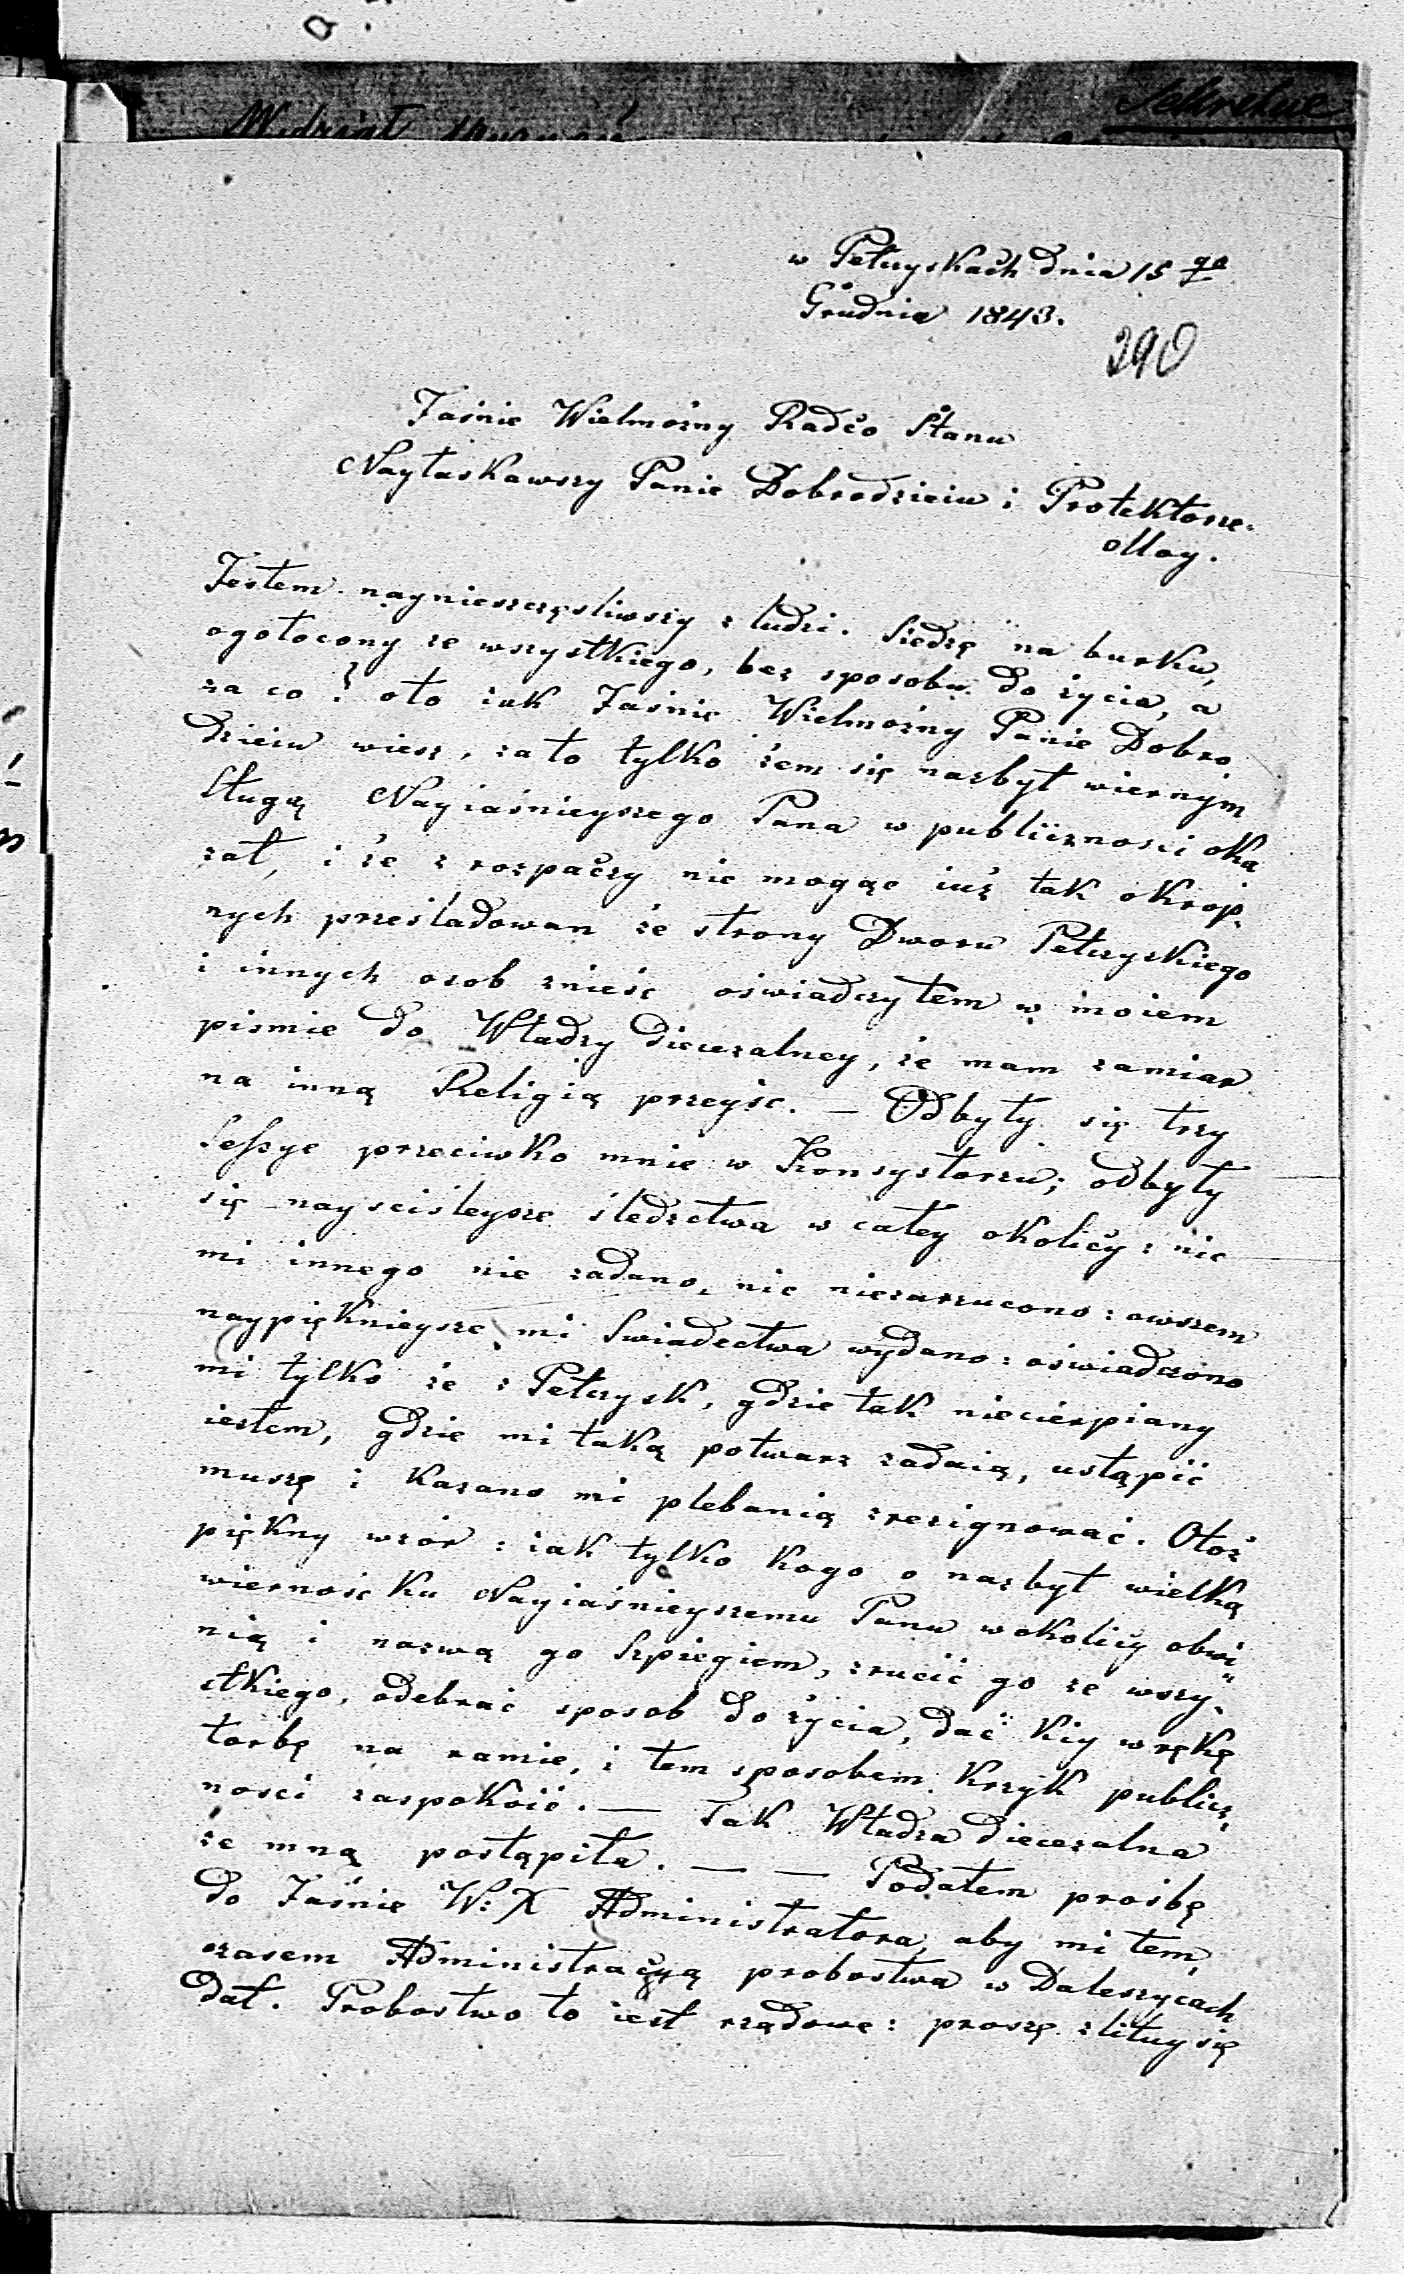 Sekretne
Wydział
w Pełczyskach dnia 15 go
Grudnia 1843.
290
Jaśnie Wielmożny Radco Stanu
Nayłaskawszy Panie Dobrodzieiu i Protektorze
Moy.
Jestem naynieszczęsliwszy z ludzi. Siedzę na burku,
ogołocony ze wszystkiego, bez sposobu do życia, a
za co? oto iak Jaśnie Wielmożny Panie Dobro-
dzieiu wiesz, za to tylko żem się nazbyt wiernym
Sługą Nayiaśnieyszego Pana w publicznosci oka
zał, i że z rozpaczy nie mogąc iuż tak okrop-
nych prześladowan ze strony Dworu Pełczyskiego
i innych osob znieść oswiadczyłem w moiem
pismie do Władzy Dieceżalney, że mam zamiar
na inną Religią przeyśc. — Odbyły się trzy
Sessye przeciwko mnie w Konsystorzu; odbyły
się nayscisleysze śledztwa w całey okolicy: nic
mi innego nie zadano, nic niezarzucono: owszem
naypięknieysze mi Swiadectwa wydano: oświadczono
mi tylko że z Pełczysk, gdzie tak niecierpiany
iestem, gdzie mi taką potwarz zadaią, ustąpić
muszę i kazano mi plebanią zrezignować. Otoż
piękny wzór: iak tylko kogo o nazbyt wielką
wiernośc ku Nayiaśnieyszemu Panu w okolicy obwi
nią i nazwą go Szpiegiem, zrucić go ze wszy-
stkiego, odebrać sposob do życia, dać kiy w rękę
torbę na ramie, i tem sposobem krzyk publicz-
nosci zaspokoić. — Tak Władza Dieceżalna
ze mną postąpiła. — — Podałem prośbę
do Jaśnie W: X Administratora, aby mi tem-
czasem Administracyą probostwa w Daleszycach
dał. Probostwo to iest rządowe: proszę zlituy się